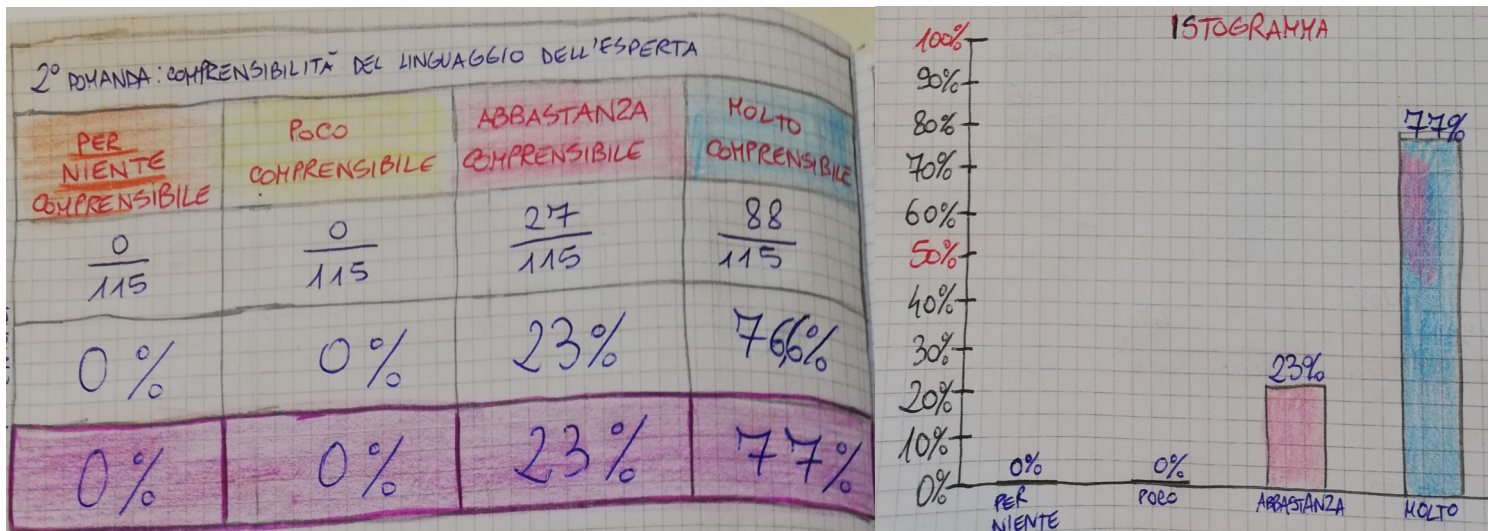 2° DOMANDA: COMPRENSIBILITÀ DEL LINGUAGGIO DELL'ESPERTA
PER
NIENTE
COMPRENSIBILE
POCO
COMPRENSIBILE
ABBASTANZA
COMPRENSIBILE
MOLTO
COMPRENSIBILE
0
115
0
115
27
115
88
115
0% 0% 23% 76,6%
0% 0% 23% 77%
ISTOGRAMMA
100%
90%
80%
70%
60%
50%
40%
30%
20%
10%
0%
0%
0%
23%
77%
PER
NIENTE
POCO
ABBASTANZA
MOLTO